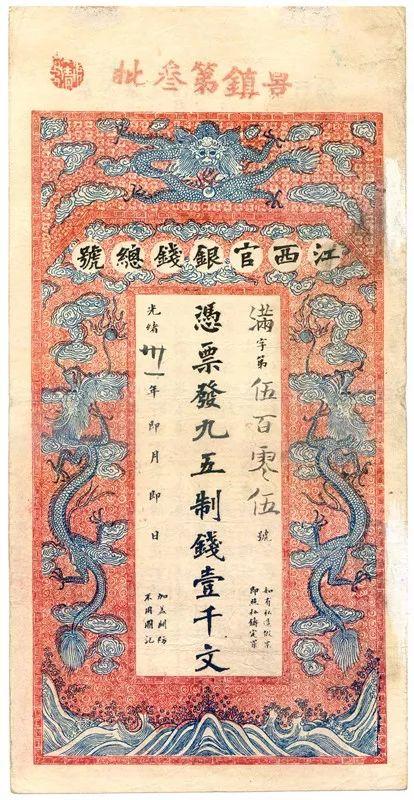 景鎮第叄批
江西官銀錢總號
滿字第伍百零伍號
如有私造假票
即照私鑄定罪
憑票發九五制錢壹千文
光緒卅一年即月即日
加蓋關防
不用圖記